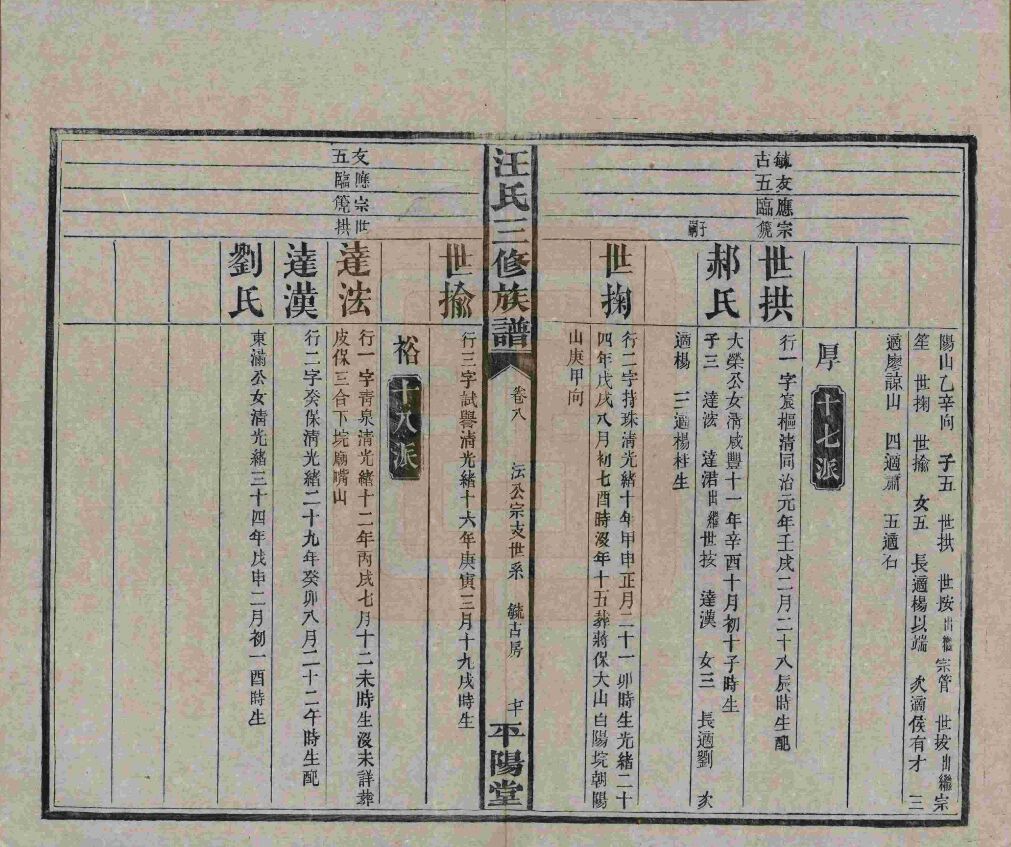 陽山乙辛向 子五 世拱 世按出繼宗管 世拔出繼宗
笙 世掬 世揄 女五 長適楊以端 次適侯有才 三
適廖諒山 四適蕭 五適石
厚 十七派
毓友應宗
古五臨篼
世拱
行一字宸樞清同治元年壬戌二月二十八辰時生配
郝氏
大榮公女清咸豐十一年辛酉十月初十子時生
子三 達浤 達涒出繼世按 達漢 女三 長適劉 次
適楊 三適楊柱生
子嗣
世掬
行二字持珠清光緒十年甲申正月二十一卯時生光緒二十
四年戊戌八月初七酉時沒年十五葬蔣保大山白陽垸朝陽
山庚甲向
汪氏三修族譜 卷八 沄公宗支世系 毓古房 平陽堂
世揄
行三字試譽清光緒十六年庚寅三月十九戌時生
裕 十八派
友應宗世
五臨篼拱
達浤
行一字靑泉清光緒十二年丙戌七月十二未時生沒未詳葬
皮保三合下垸廟嘴山
達漢
行二字癸保清光緒二十九年癸卯八月二十二午時生配
劉氏
東滿公女清光緒三十四年戊申二月初一酉時生